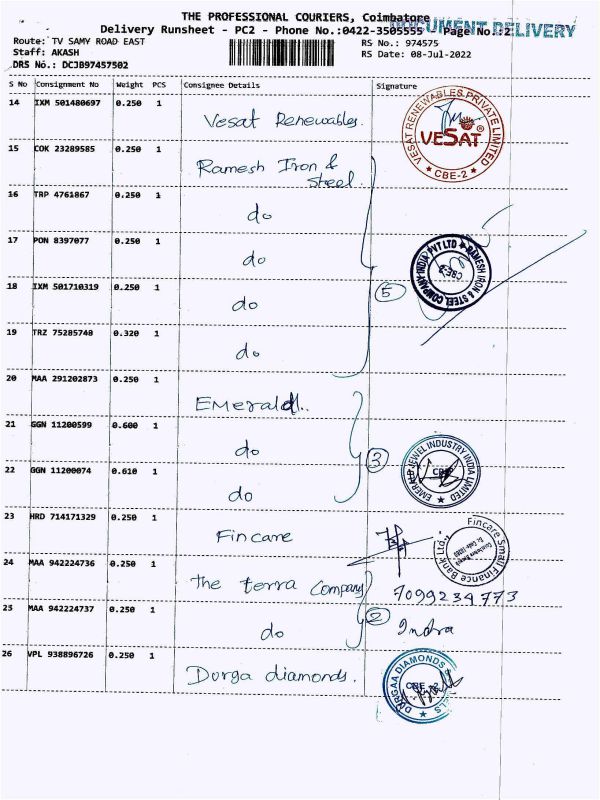 THE PROFESSIONAL COURIERS, Coimbatore
DOCUMENT DELIVERY
Delivery Runsheet - PC2 - Phone No.:0422-3505555 Page No.:2
Route: TV SAMY ROAD EAST RS No.: 974575
Staff: AKASH RS Date: 08-Jul-2022
DRS No.: DCJB97457502
S No Consignment No Weight PCS Consignee Details Signature
14 IXM 501480697 0.250 1 Vesat Renewables.
VESAT RENEWABLES PRIVATE LIMITED
VESAT
CBE-2
15 COK 23289585 0.250 1 Ramesh Iron & Steel
16 TRP 4761867 0.250 1 do
17 PON 8397077 0.250 1 do
RAMESH IRON & STEEL COMPANY INDIA PVT LTD
CBE-2
18 IXM 501710319 0.250 1 do
5
19 TRZ 75285740 0.320 1 do
20 MAA 291202873 0.250 1 Emerald..
21 GGN 11200599 0.600 1 do
3
EMERALD JEWEL INDUSTRY INDIA LIMITED
22 GGN 11200074 0.610 1 do
23 HRD 714171329 0.250 1 Fincare
Fincare Small Finance Bank Ltd.,
24 MAA 942224736 0.250 1 The terra Company
7099234773
25 MAA 942224737 0.250 1 do
2
Indra
26 VPL 938896726 0.250 1 Durga diamonds.
CBE